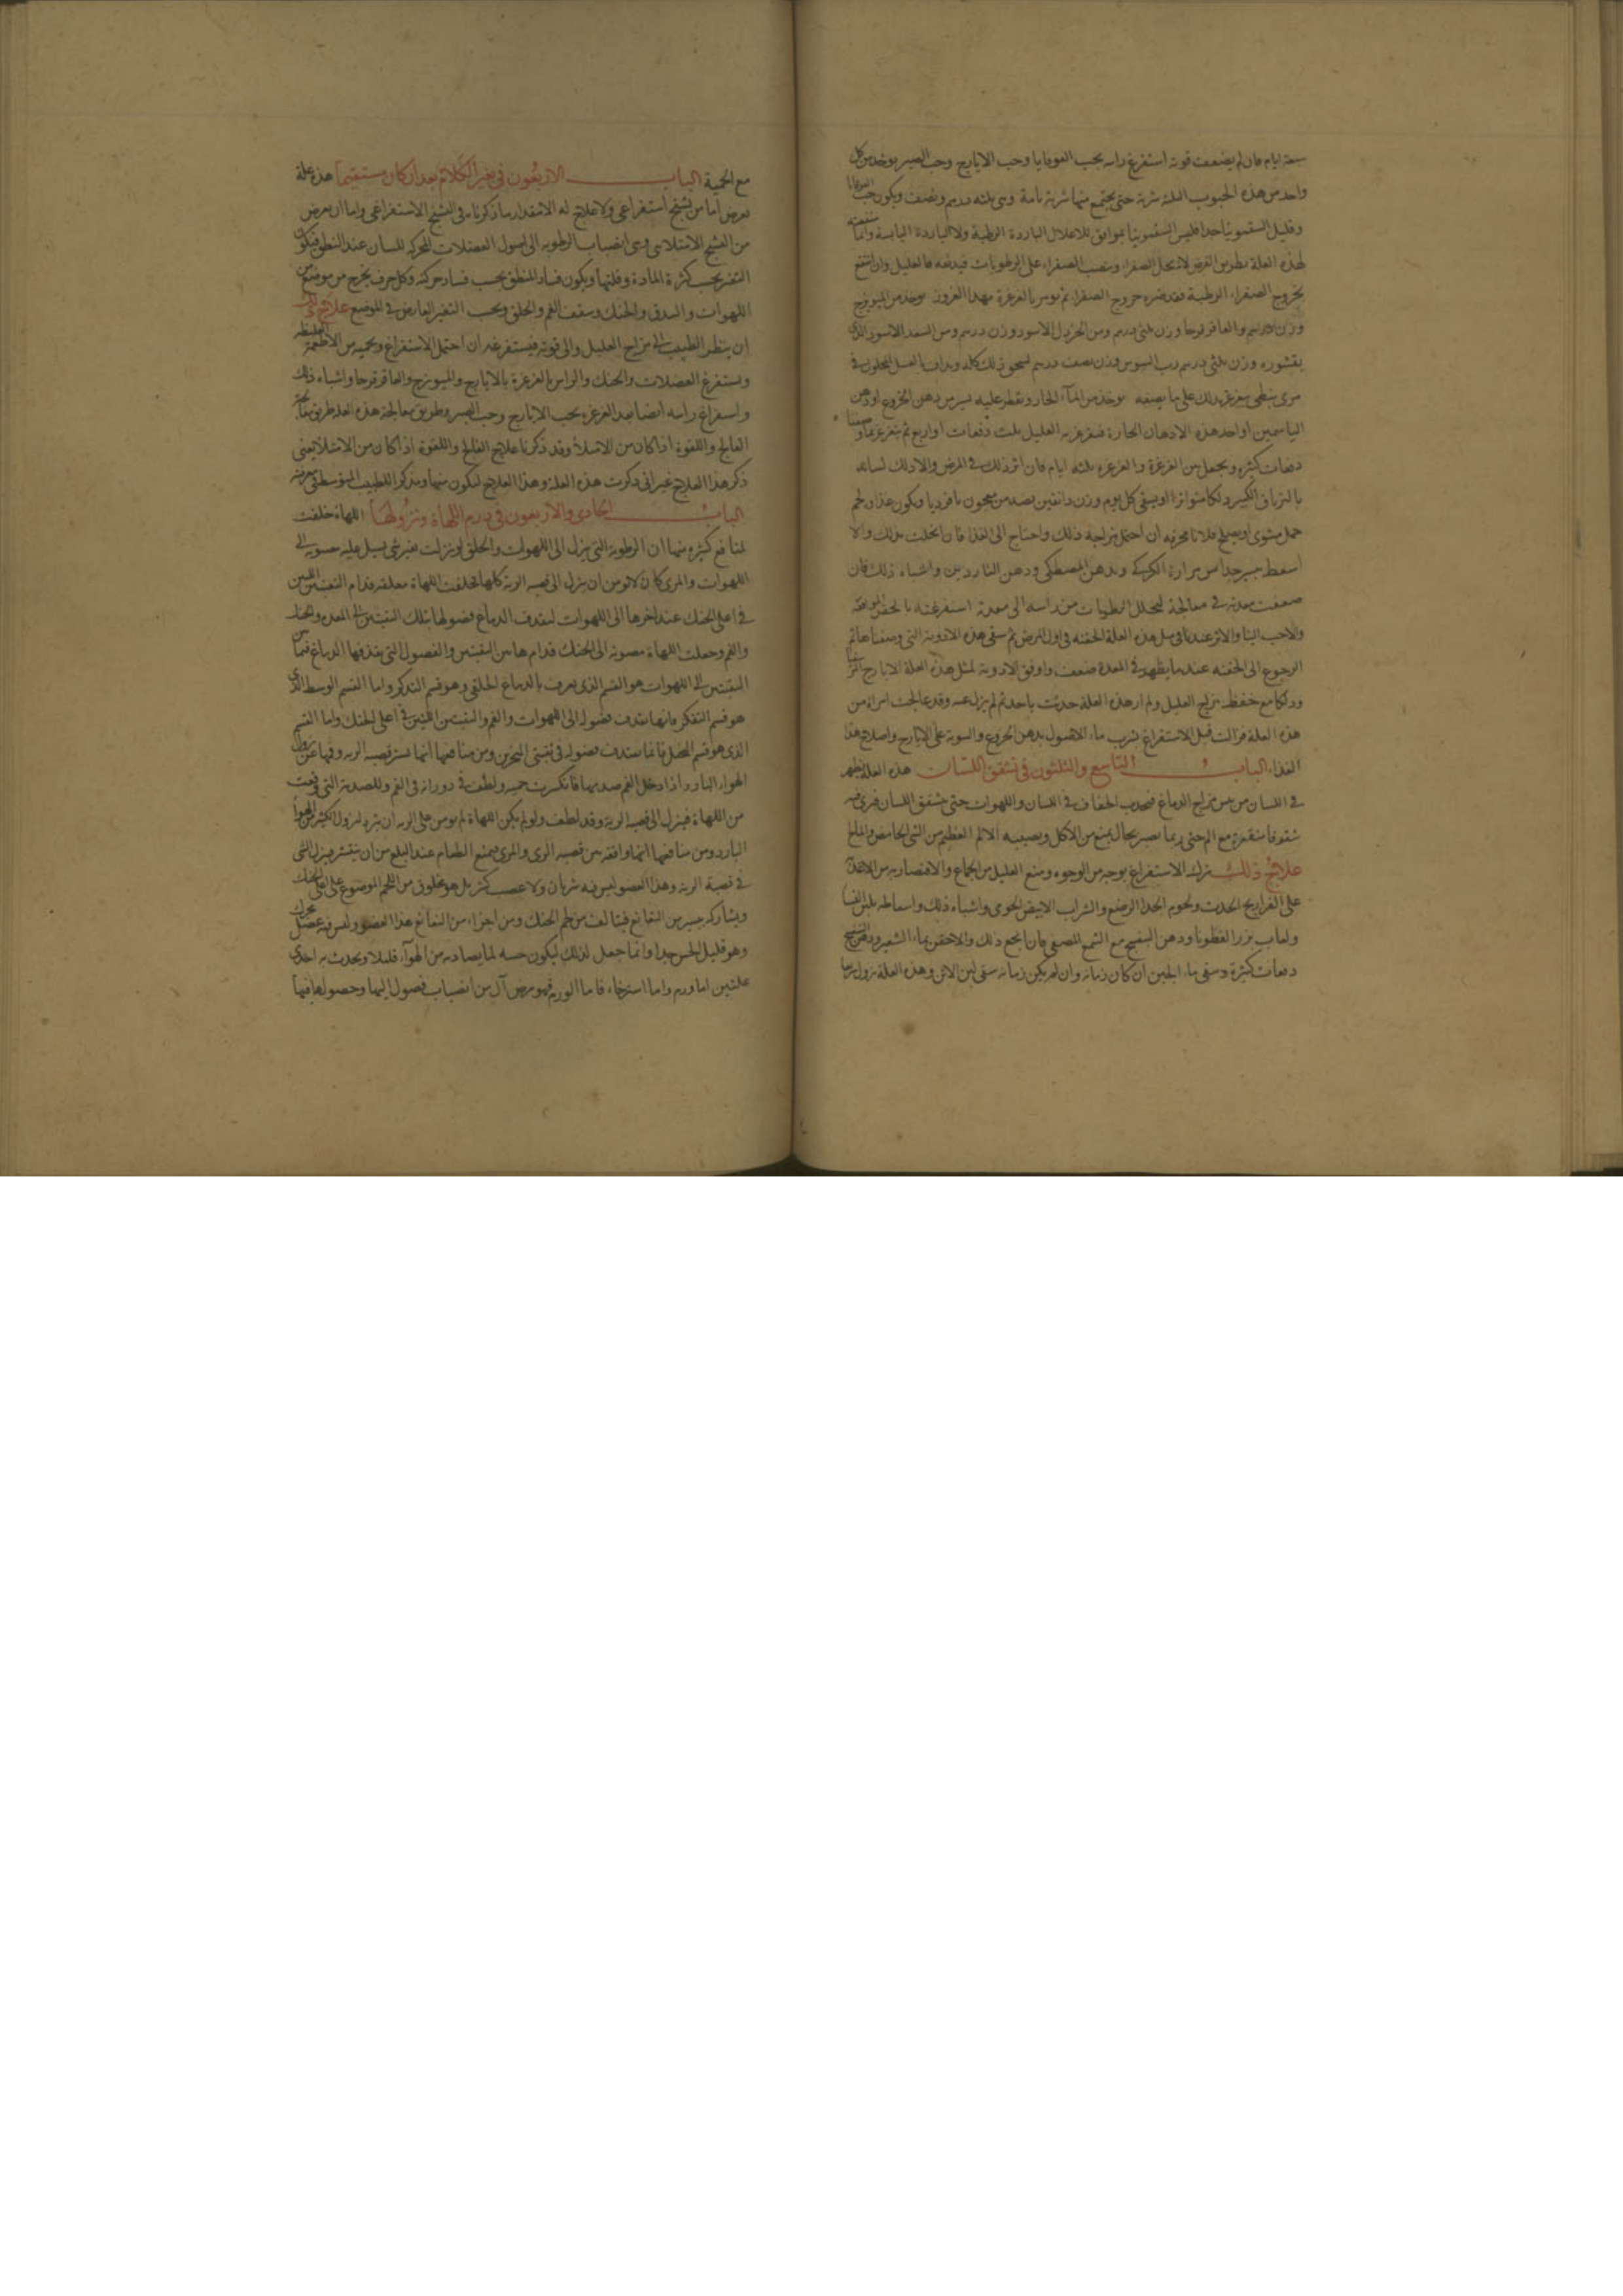 سبعة ايام فان لم يضعف قوته استفرغ راسه بحب القوقايا وحب الايارج وحب الصبر يوخذ من كل
واحد من هذه الحبوب الثلثة شربة حتى يجتمع منها شربة تامة وهى ثلثة درهم ونصف ويكون حب القوقايا
وقليل السقمونيا جدا فليس السقمونيا بموافق للاعلال الباردة الرطبة ولا الباردة اليابسة وانما منفعته
لهذه العلة بطريق العرض لانه يحل الصفراء وتنصب الصفراء على الرطوبات فيدفعه فالعليل وان انتفع
بخروج الصفراء الرطبة فقد ضره خروج الصفراء ثم يومر بالغرغرة بهذا الغرور يوخذ من الميويزج
وزن درهم والعاقرقرحا وزن ثلثى درهم ومن الخردل الاسود وزن درهم ومن السعد الاسود الذى
بقشوره وزن ثلثى درهم رب السوس وزن نصف درهم يسحق ذلك كله ويداف بالعسل المحلول فى
مرى نبطى يتغرغر بذلك على ما نصفه يوخذ من المآء الحار ويقطر عليه يسير من دهن الخروع او دهن
الياسمين او احد هذه الادهان الحارة فيغرغر به العليل ثلث دفعات او اربع ثم يتغرغر بما وصفنا
دفعات كثيرة ويجعل من الغرغرة والغرغرة ثلثه ايام فان اثر ذلك فى المرض والا دلك لسانه
بالترياق الكبير دلكا متواترا او يسقى كل يوم وزن دانقين نصفه من معجون بافرديا ويكون غذاوه لحم
حمل مشوى او يصلح فلانا محرفه ان احتمل مزاجه ذلك واحتاج الى الغذا فان انحلت بذلك والا
اسعط بيسير جدا من مرارة الكركى وبدهن المصطكى ودهن الناردين واشباه ذلك فان
ضعفت معدته فى معالجة لتحلل الرطوبات من راسه الى معدته استفرغته بالحقن الموافقة
والاحب الينا والاثر عندنا فى مثل هذه العلة الحقنه فى اول المرض ثم سقى هذه الادوية التى وصفناها ثم
الرجوع الى الحقنه عند ما يظهر فى المعدة ضعف واوفق الادوية لمثل هذه العلة الايارج شربا
ودلكا مع حفظه مزاج العليل ولم ار هذه العلة حدثت باحد ثم لم يزل عنه وقد عالجت امراة من
هذه العلة فزالت قبل الاستفراغ بشرب ماء الاصول بدهن الخروع والسوية على الايارج واصلاح هذا
الغذاء الباب التاسع والثلثون فى تشقق اللسان هذه العلة تظهر
فى اللسان من يبس مزاج الدماغ فيحدث الجفاف فى اللسان واللهوات حتى يتشقق اللسان فيرى فيه
شقوقا منقعرة مع الم حتى ربما يصير بحال يمنع من الاكل ويصيبه الالم العظيم من الشى الحامض والمالح
علاج ذلك ترك الاستفراغ بوجه من الوجوه ومنع العليل من الجماع والاقتصار به من الاغذية
على الفراريج الحدث ولحوم الجدا الرضع والشراب الابيض الحوى واشباه ذلك واسعاطه بلبن النسا
ولعاب بزر القطونا ودهن البنفسج مع الشمع المصفى فان انجع ذلك والا حقن بماء الشعير ودهن البنفسج
دفعات كثيرة وسقى ماء الجبن ان كان زمانه وان لم يكن زمانه سقى لبن الاتن وهذه العلة تزول سريعا
مع الحمية الباب الاربعون فى تغير الكلام بعد ان كان مستقيما هذه علة
تعرض اما من تشنج استفراغى ولا علاج له الا مقدار ما ذكرناه فى التشنج الاستفراغى واما ان يعرض
من التشنج الامتلائى وهى انصباب الرطوبة الى اصول العضلات المحركة للسان عند النطق فيكون
التغير بحسب كثرة المادة وقلتها ويكون فساد المنطق بحسب فساد حركته وكل حرف يخرج من موضع من
اللهوات والشدق والحنك وسقف الفم والحلق وبحسب التغير العارض فى الموضع علاج ذلك
ان ينظر الطبيب الى مزاج العليل والى قوته فيستفرغه ان احتمل الاستفراغ ويحميه من الاطعمة الغليظة
ويستفرغ العضلات والحنك والراس بالغرغرة بالايارج والميويزج والعاقرقرحا واشباه ذلك
واستفراغ راسه ايضا بعد الغرغرة بحب الايارج وحب الصبر وطريق معالجة هذه العلة طريق معالجة
الفالج واللقوة اذا كان من الامتلاء وقد ذكرنا علاج الفالج واللقوة اذا كان من الامتلا يغنى
ذكر هذا العلاج غير انى ذكرت هذه العلة وهذا العلاج لتكون منبها ومذكرا للطبيب المتوسط فى معرفته
الباب الحادى والاربعون فى ورم اللهاة ونزولها اللهاة خلقت
لمنافع كثيرة منها ان الرطوبة التى ينزل الى اللهوات والحلق لو نزلت بغير شى يسيل عليه حسوبه الى
اللهوات والمرى كان لا يومن ان ينزل الى قصبه الرية كلها فخلقت اللهاة معلقة قدام الثقبتين اللتين
فى اعلى الحنك عند اخرها الى اللهوات ليقذف الدماغ فضولها بتلك الثقبتين الى المعده والحنك
والفم وجعلت اللهاة مصوبة الى الحنك قدام هاتين الثقبتين والفضول التى يقذفها الدماغ فيما بين
الثقبتين الى اللهوات هو القسم الذى يعرف بالدماغ الخلفى وهو قسم التذكر واما القسم الوسط الذى
هو قسم التفكر فانها يقذف فضوله الى اللهوات والفم والثقبتين اللتين فى اعلى الحنك واما القسم
الذى هو قسم التخيل فانما يقذف فضوله فى ثقبتى المنخرين ومن منافعها انها تستر قصبه الرية وفيها عن نزول
الهواء البارد اذا دخل الفم صدمها فانكسرت حميته ولطف فى دورانه فى الفم وللصدمة التى وقعت
من اللهاة فينزل الى قصبه الرية وقد لطف ولو لم يكن اللهاة لم يومن على الرية ان يبرد لنزول الكثير من الهوآ
البارد ومن منافعها انها واقفة بين قصبه الرى والمرى فيمنع الطعام عند البلع من ان ينتشر فينزل الشى
فى قصبة الرية وهذا العضو ليس فيه شريان ولا عصب كثير بل هو مخلوق من اللحم الموضوع على اعلى الحنك
ويشاركه يسير من النغانغ فيتالف من لحم الحنك ومن اجزاء من النغانغ هذا العضو وليس فيه عضل محرك
وهو قليل الحس جدا وانما جعل لذلك ليكون حسه لما يصادفه من الهوآء قليلا ويحدث به احدى
علتين اما ورم واما استرخاء فاما الورم فهو مرض آلى من انصباب فضول اليها وحصولها فيها